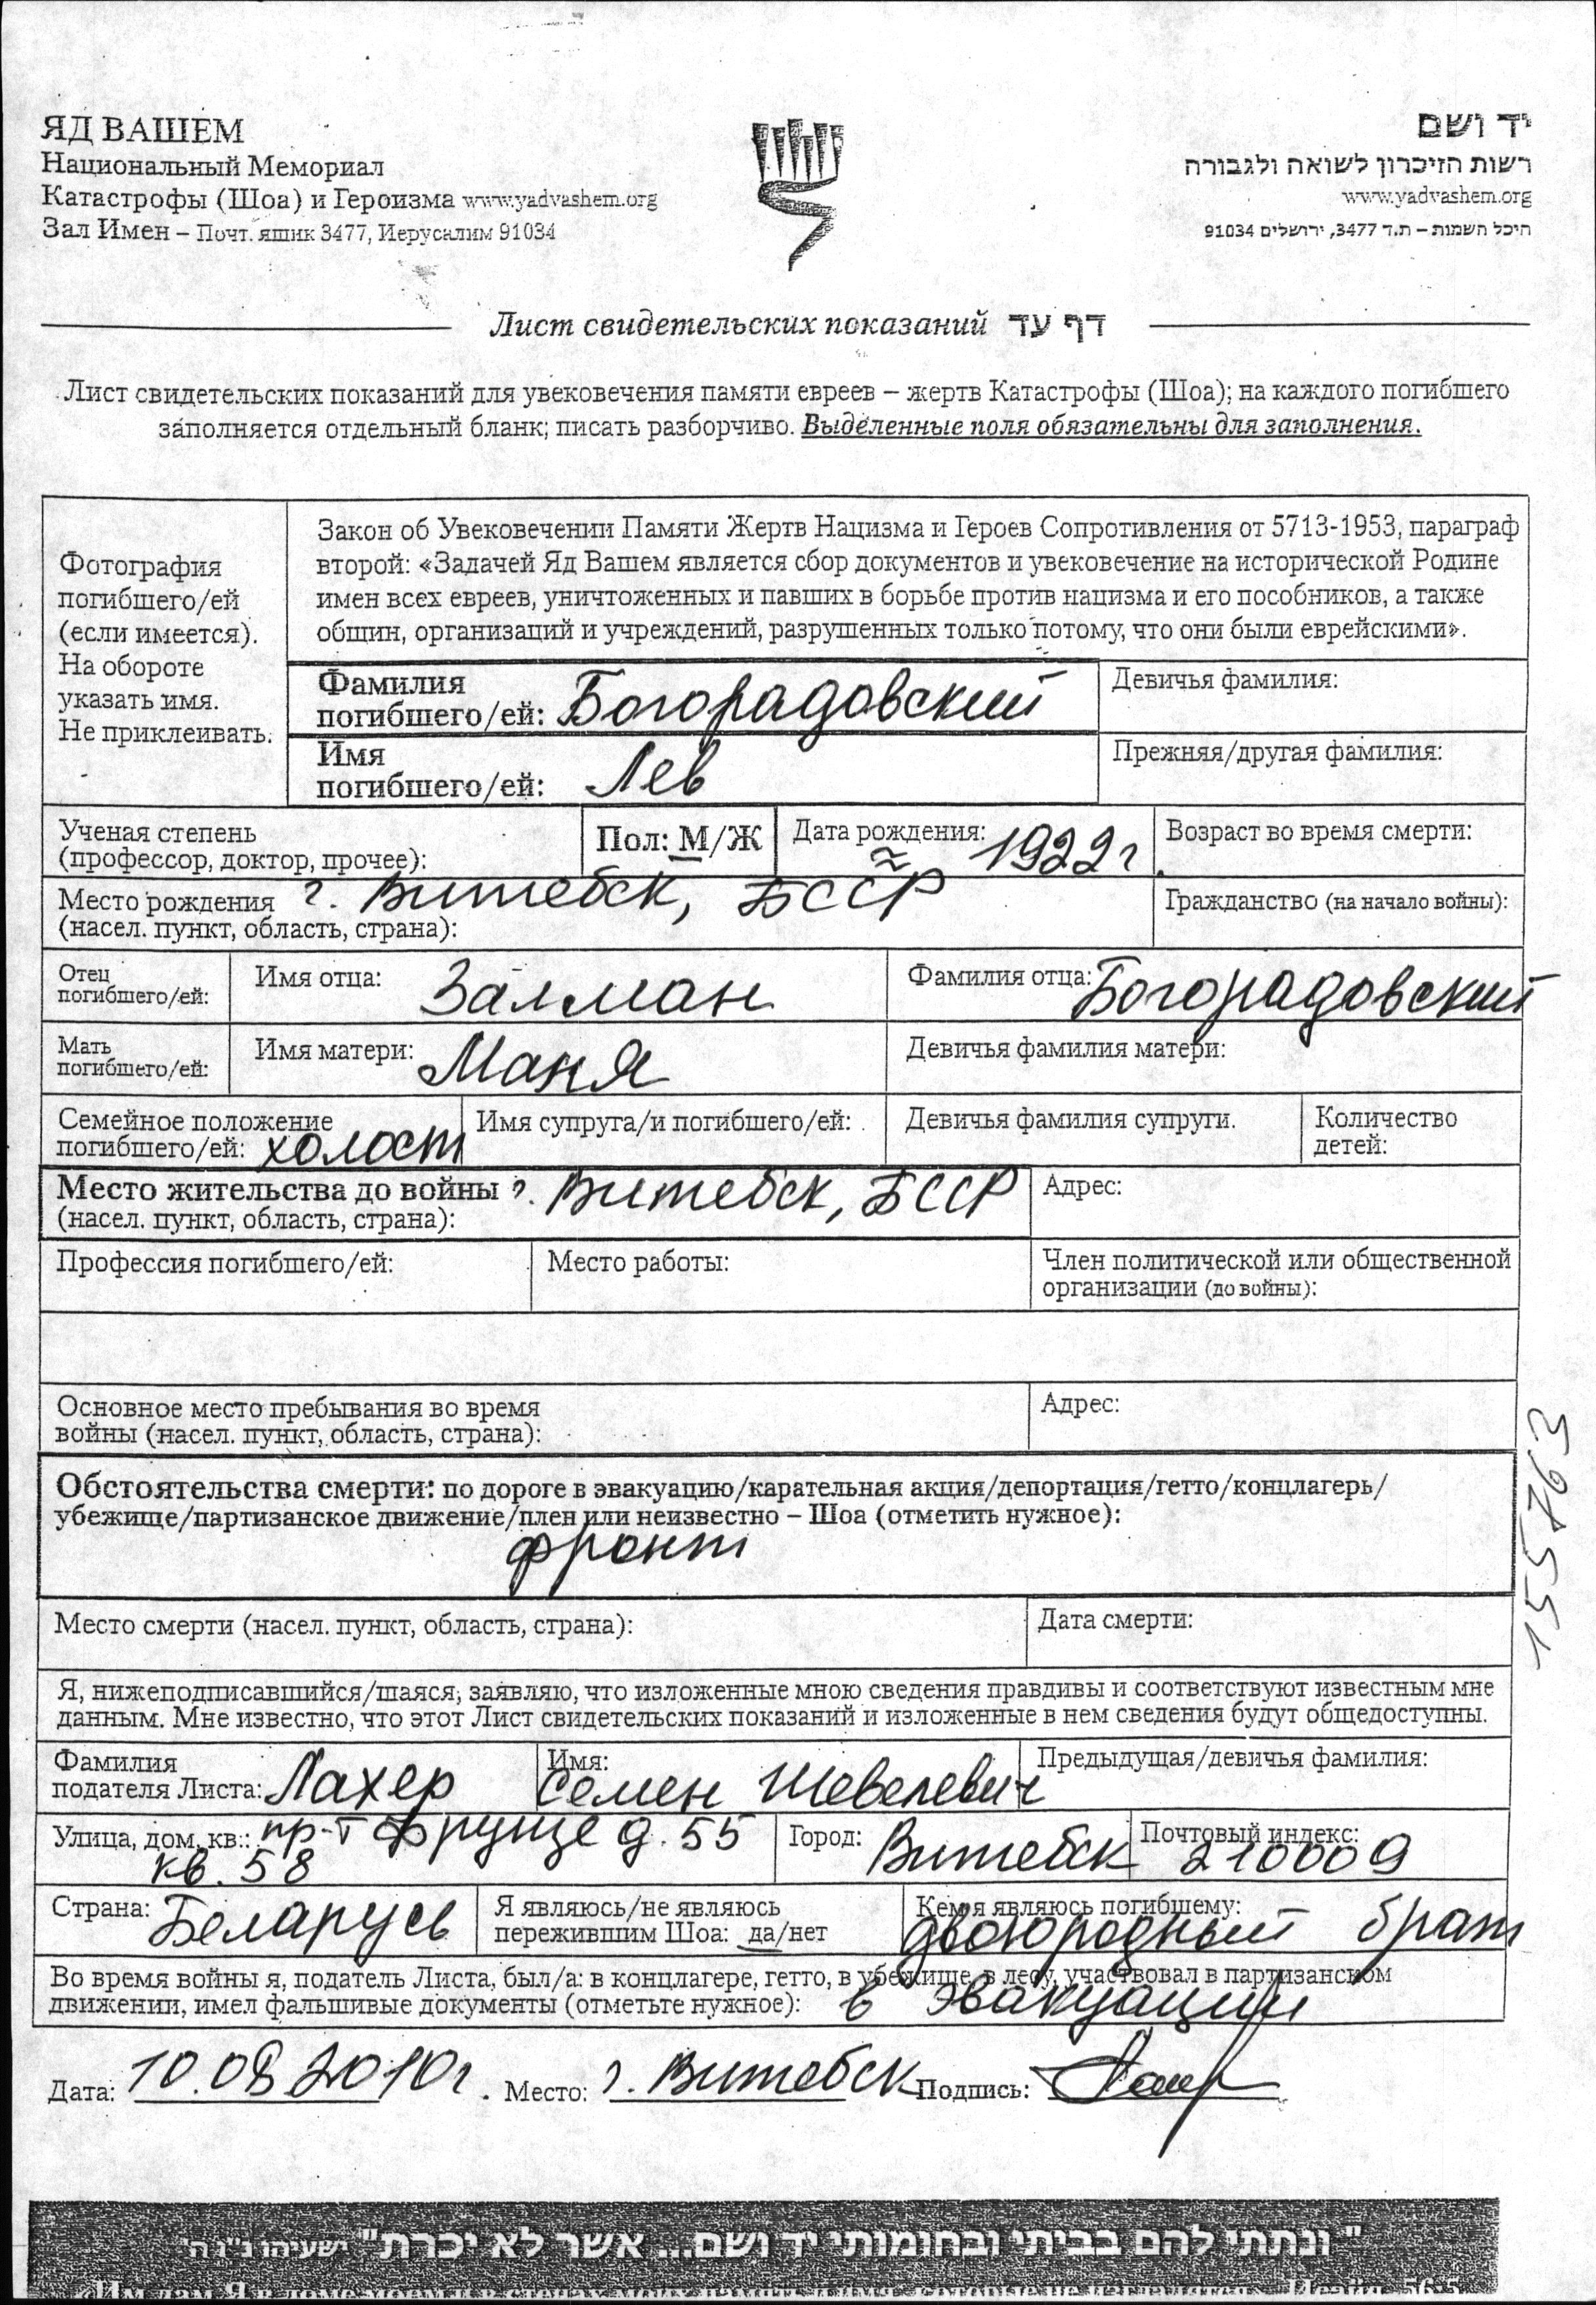 ЯД ВАШЕМ
Национальный Мемориал
Катастрофы (Шоа) и Героизма www.yadvashem.org
Зал Имен – Почт. ящик 3477, Иерусалим 91034
יד ושם
רשות הזיכרון לשואה ולגבורה
www.yadvashem.org
היכל השמות – ת.ד 3477, ירושלים 91034
Лист свидетельских показаний דף עד
Лист свидетельских показаний для увековечения памяти евреев – жертв Катастрофы (Шоа); на каждого погибшего
заполняется отдельный бланк; писать разборчиво. Выделенные поля обязательны для заполнения.
Фотография
погибшего/ей
(если имеется).
На обороте
указать имя.
Не приклеивать.
Закон об Увековечении Памяти Жертв Нацизма и Героев Сопротивления от 5713-1953, параграф
второй: «Задачей Яд Вашем является сбор документов и увековечение на исторической Родине
имен всех евреев, уничтоженных и павших в борьбе против нацизма и его пособников, а также
общин, организаций и учреждений, разрушенных только потому, что они были еврейскими».
Фамилия
погибшего/ей: Богорадовский
Девичья фамилия:
Имя
погибшего/ей: Лев
Прежняя/другая фамилия:
Ученая степень
(профессор, доктор, прочее):
Пол: М/Ж
Дата рождения: ≈ 1922г.
Возраст во время смерти:
Место рождения г. Витебск, БССР
(насел. пункт, область, страна):
Гражданство (на начало войны):
Отец
погибшего/ей:
Имя отца: Залман
Фамилия отца: Богорадовский
Мать
погибшего/ей:
Имя матери: Маня
Девичья фамилия матери:
Семейное положение
погибшего/ей: холост
Имя супруга/и погибшего/ей:
Девичья фамилия супруги.
Количество
детей:
Место жительства до войны г. Витебск, БССР
(насел. пункт, область, страна):
Адрес:
Профессия погибшего/ей:
Место работы:
Член политической или общественной
организации (до войны):
Основное место пребывания во время
войны (насел. пункт, область, страна):
Адрес:
Обстоятельства смерти: по дороге в эвакуацию/карательная акция/депортация/гетто/концлагерь/
убежище/партизанское движение/плен или неизвестно – Шоа (отметить нужное):
фронт
155763
Место смерти (насел. пункт, область, страна):
Дата смерти:
Я, нижеподписавшийся/шаяся, заявляю, что изложенные мною сведения правдивы и соответствуют известным мне
данным. Мне известно, что этот Лист свидетельских показаний и изложенные в нем сведения будут общедоступны.
Фамилия
подателя Листа: Лахер
Имя:
Семен Шевелевич
Предыдущая/девичья фамилия:
Улица, дом, кв.: пр-т Фрунзе д. 55
кв. 58
Город: Витебск
Почтовый индекс:
210009
Страна: Беларусь
Я являюсь/не являюсь
пережившим Шоа: да/нет
Кем я являюсь погибшему:
двоюродный брат
Во время войны я, податель Листа, был/а: в концлагере, гетто, в убежище, в лесу, участвовал в партизанском
движении, имел фальшивые документы (отметьте нужное): в эвакуации
Дата: 10.08.2010г. Место: г. Витебск Подпись:
"ונתתי להם בביתי ובחומותי יד ושם... אשר לא יכרת" ישעיהו נ"ו ה'